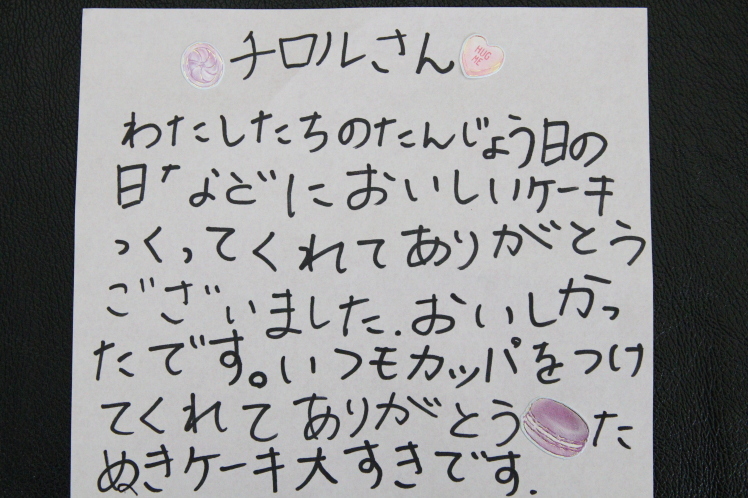 チロルさん
HUG
ME
わたしたちのたんじょう日の
日などにおいしいケーキ
つくってくれてありがとう
ございました.おいしかっ
たです。いつもカッパをつけ
てくれてありがとう た
ぬきケーキ大すきです.